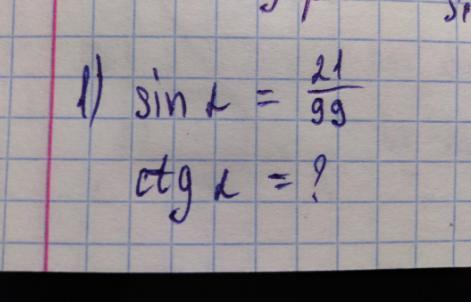 1) sin α = 21/99
ctg α = ?